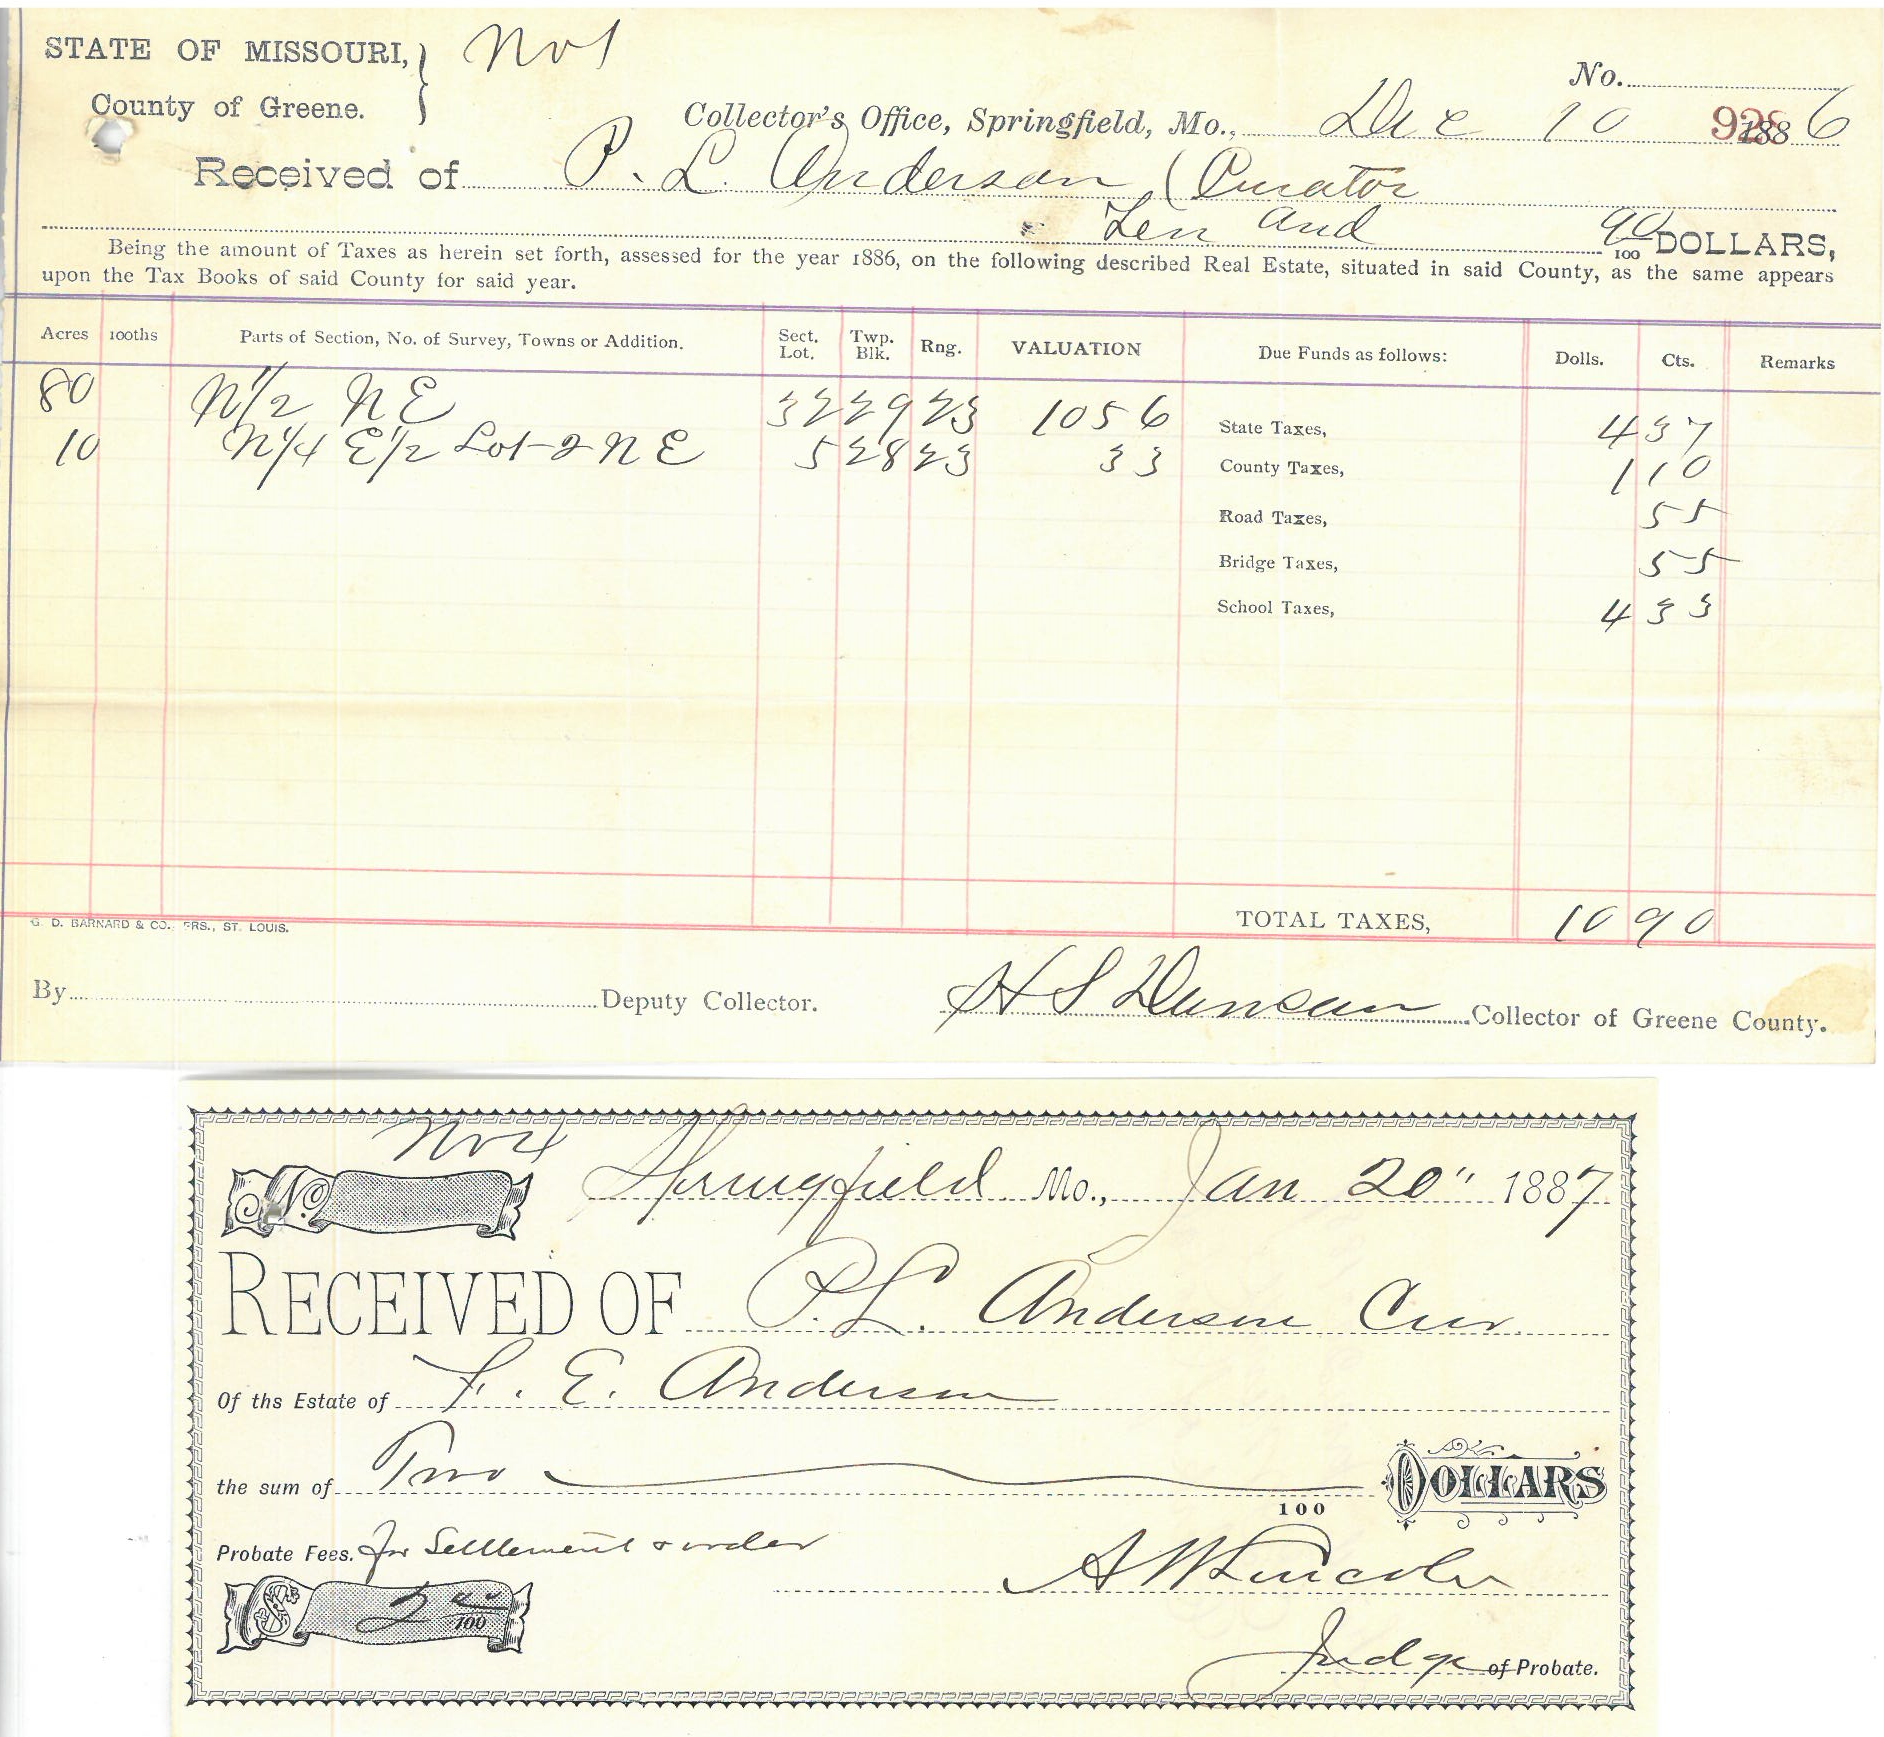 STATE OF MISSOURI, } No 1
County of Greene.
No.
928
Collector's Office, Springfield, Mo., Dec 10 1886
Received of P. L. Anderson (Curator
Ten and 90/100 DOLLARS,
Being the amount of Taxes as herein set forth, assessed for the year 1886, on the following described Real Estate, situated in said County, as the same appears
upon the Tax Books of said County for said year.
Acres 100ths Parts of Section, No. of Survey, Towns or Addition. Sect. Lot. Twp. Blk. Rng. VALUATION Due Funds as follows: Dolls. Cts. Remarks
80 N 1/2 N E 32 29 23 1056 State Taxes, 4 37
10 N 1/4 E 1/2 Lot 2 N E 5 28 23 33 County Taxes, 1 10
Road Taxes, 55
Bridge Taxes, 55
School Taxes, 4 33
TOTAL TAXES, 10 90
G. D. BARNARD & CO., PRS., ST. LOUIS.
By Deputy Collector. H S Duncan Collector of Greene County.
No 4
No. Springfield Mo., Jan 20" 1887
RECEIVED OF P. L. Anderson Cur.
Of ths Estate of F. E. Anderson
the sum of Two 100 DOLLARS
Probate Fees. for Settlement & order
$ 2 00/100 A W Lincoln
Judge of Probate.